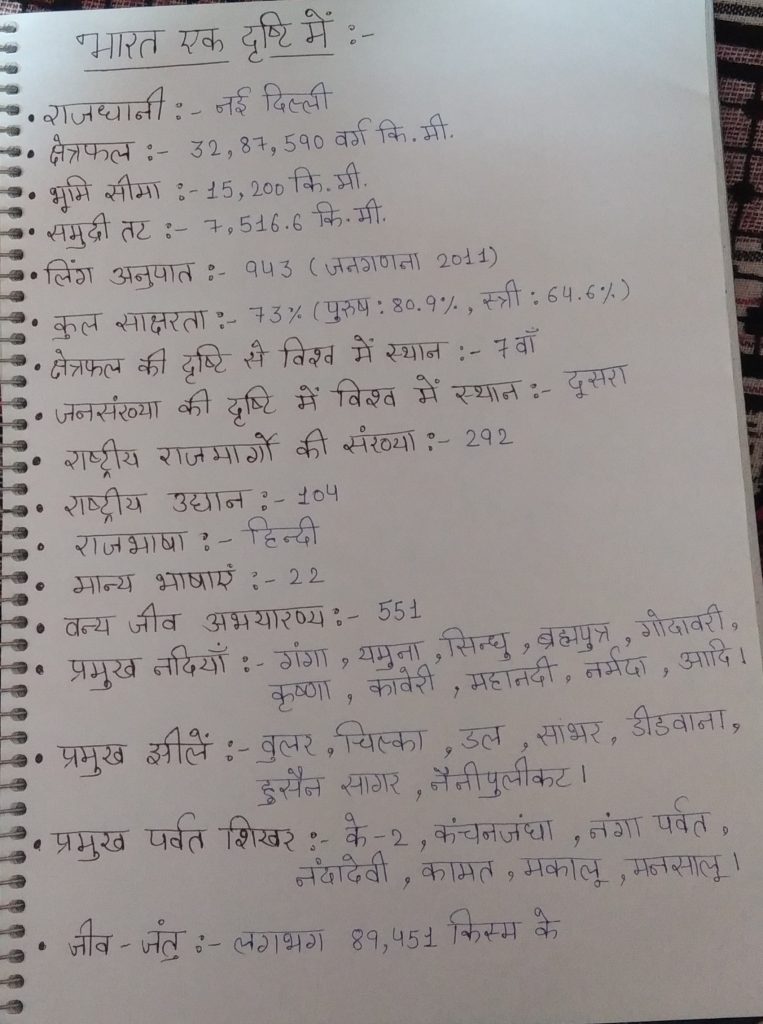 भारत एक दृष्टि में :-
• राजधानी :- नई दिल्ली
• क्षेत्रफल :- 32,87,590 वर्ग कि.मी.
• भूमि सीमा :- 15,200 कि.मी.
• समुद्री तट :- 7,516.6 कि.मी.
• लिंग अनुपात :- 943 (जनगणना 2011)
• कुल साक्षरता :- 73% (पुरुष : 80.9%, स्त्री : 64.6%)
• क्षेत्रफल की दृष्टि से विश्व में स्थान :- 7वाँ
• जनसंख्या की दृष्टि में विश्व में स्थान :- दूसरा
• राष्ट्रीय राजमार्गों की संख्या :- 292
• राष्ट्रीय उद्यान :- 104
• राजभाषा :- हिन्दी
• मान्य भाषाएं :- 22
• वन्य जीव अभयारण्य :- 551
• प्रमुख नदियाँ :- गंगा, यमुना, सिन्धु, ब्रह्मपुत्र, गोदावरी,
कृष्णा, कावेरी, महानदी, नर्मदा, आदि।
• प्रमुख झीलें :- वुलर, चिल्का, डल, सांभर, डीडवाना,
हुसैन सागर, नैनीपुलीकट।
• प्रमुख पर्वत शिखर :- के-2, कंचनजंघा, नंगा पर्वत,
नंदादेवी, कामत, मकालू, मनसालू।
• जीव - जंतु :- लगभग 89,451 किस्म के